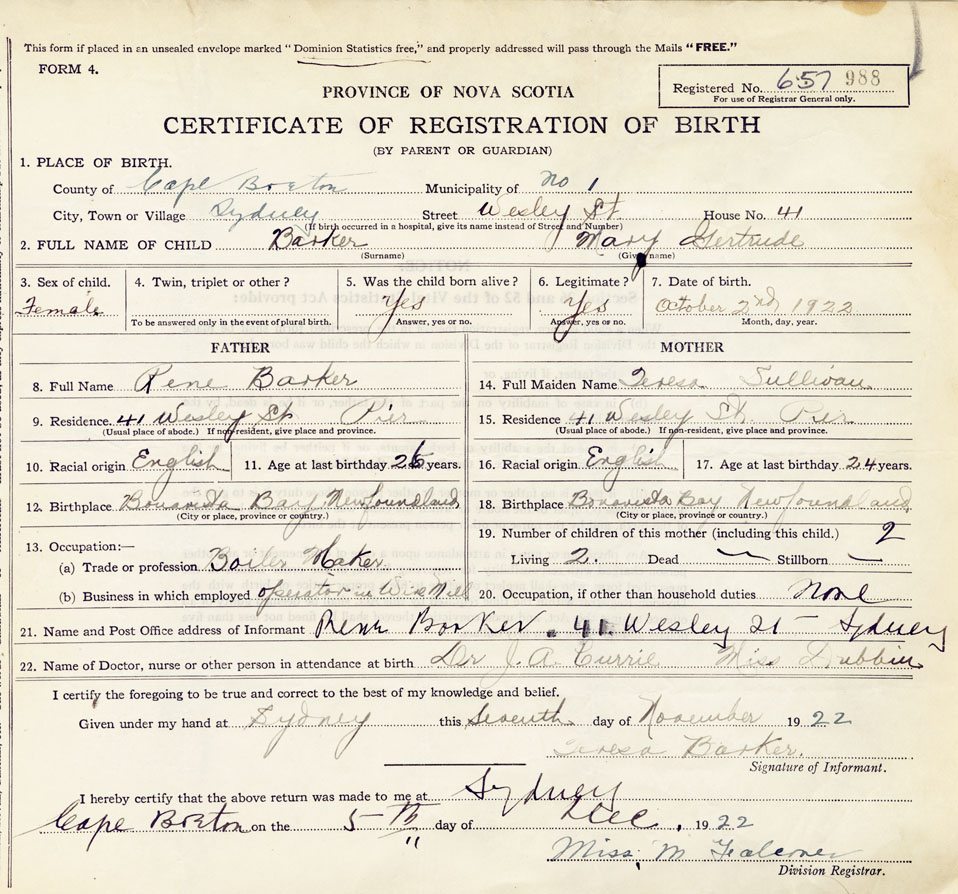 This form if placed in an unsealed envelope marked "Dominion Statistics free," and properly addressed will pass through the Mails "FREE."
FORM 4.
Registered No. 657 988
For use of Registrar General only.
PROVINCE OF NOVA SCOTIA
CERTIFICATE OF REGISTRATION OF BIRTH
(BY PARENT OR GUARDIAN)
1. PLACE OF BIRTH.
County of Cape Breton Municipality of No 1
City, Town or Village Sydney Street Wesley St. House No. 41
(If birth occurred in a hospital, give its name instead of Street and Number)
2. FULL NAME OF CHILD Barker Mary Gertrude
(Surname) (Given name)
3. Sex of child. 4. Twin, triplet or other? 5. Was the child born alive? 6. Legitimate? 7. Date of birth.
Female Yes Yes October 2nd, 1922
To be answered only in the event of plural birth. Answer, yes or no. Answer, yes or no. Month, day, year.
FATHER MOTHER
8. Full Name Rene Barker 14. Full Maiden Name Teresa Sullivan
9. Residence 41 Wesley St Pier 15. Residence 41 Wesley St. Pier
(Usual place of abode.) If non-resident, give place and province. (Usual place of abode.) If non-resident, give place and province.
10. Racial origin English 11. Age at last birthday 26 years. 16. Racial origin English 17. Age at last birthday 24 years.
12. Birthplace Bonavista Bay Newfoundland 18. Birthplace Bonavista Bay Newfoundland
(City or place, province or country.) (City or place, province or country.)
13. Occupation:— 19. Number of children of this mother (including this child.) 2
(a) Trade or profession Boiler Maker Living 2. Dead — Stillborn —
(b) Business in which employed operator in Wire Mill 20. Occupation, if other than household duties None
21. Name and Post Office address of Informant Rene Barker. 41 Wesley St - Sydney
22. Name of Doctor, nurse or other person in attendance at birth Dr J. A. Currie Miss
I certify the foregoing to be true and correct to the best of my knowledge and belief.
Given under my hand at Sydney this Seventh day of November 1922
Teresa Barker.
Signature of Informant.
I hereby certify that the above return was made to me at Sydney
Cape Breton on the 5th day of Dec. 1922
Miss M Falconer
Division Registrar.